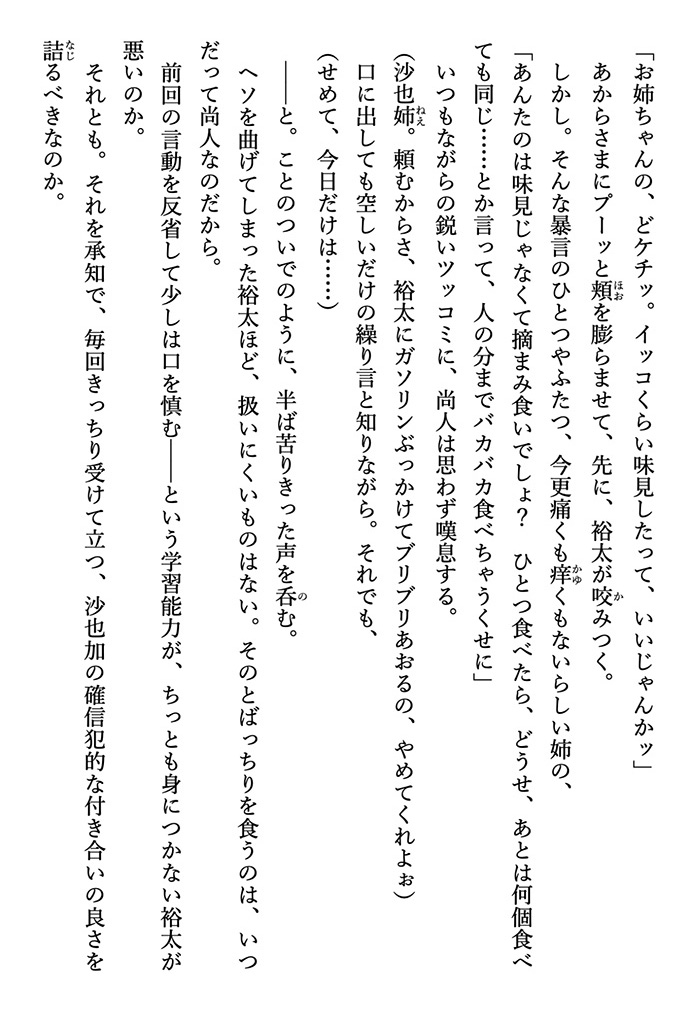 「お姉ちゃんの、どケチッ。イッコくらい味見したって、いいじゃんかッ」
あからさまにプーッと頬を膨らませて、先に、裕太が咬みつく。
しかし。そんな暴言のひとつやふたつ、今更痛くも痒くもないらしい姉の、
「あんたのは味見じゃなくて摘まみ食いでしょ？　ひとつ食べたら、どうせ、あとは何個食べ
ても同じ……とか言って、人の分までバカバカ食べちゃうくせに」
いつもながらの鋭いツッコミに、尚人は思わず嘆息する。
（沙也姉。頼むからさ、裕太にガソリンぶっかけてブリブリあおるの、やめてくれよぉ）
口に出しても空しいだけの繰り言と知りながら。それでも、
（せめて、今日だけは……）
――と。ことのついでのように、半ば苦りきった声を呑む。
ヘソを曲げてしまった裕太ほど、扱いにくいものはない。そのとばっちりを食うのは、いつ
だって尚人なのだから。
前回の言動を反省して少しは口を慎む――という学習能力が、ちっとも身につかない裕太が
悪いのか。
それとも。それを承知で、毎回きっちり受けて立つ、沙也加の確信犯的な付き合いの良さを
詰るべきなのか。